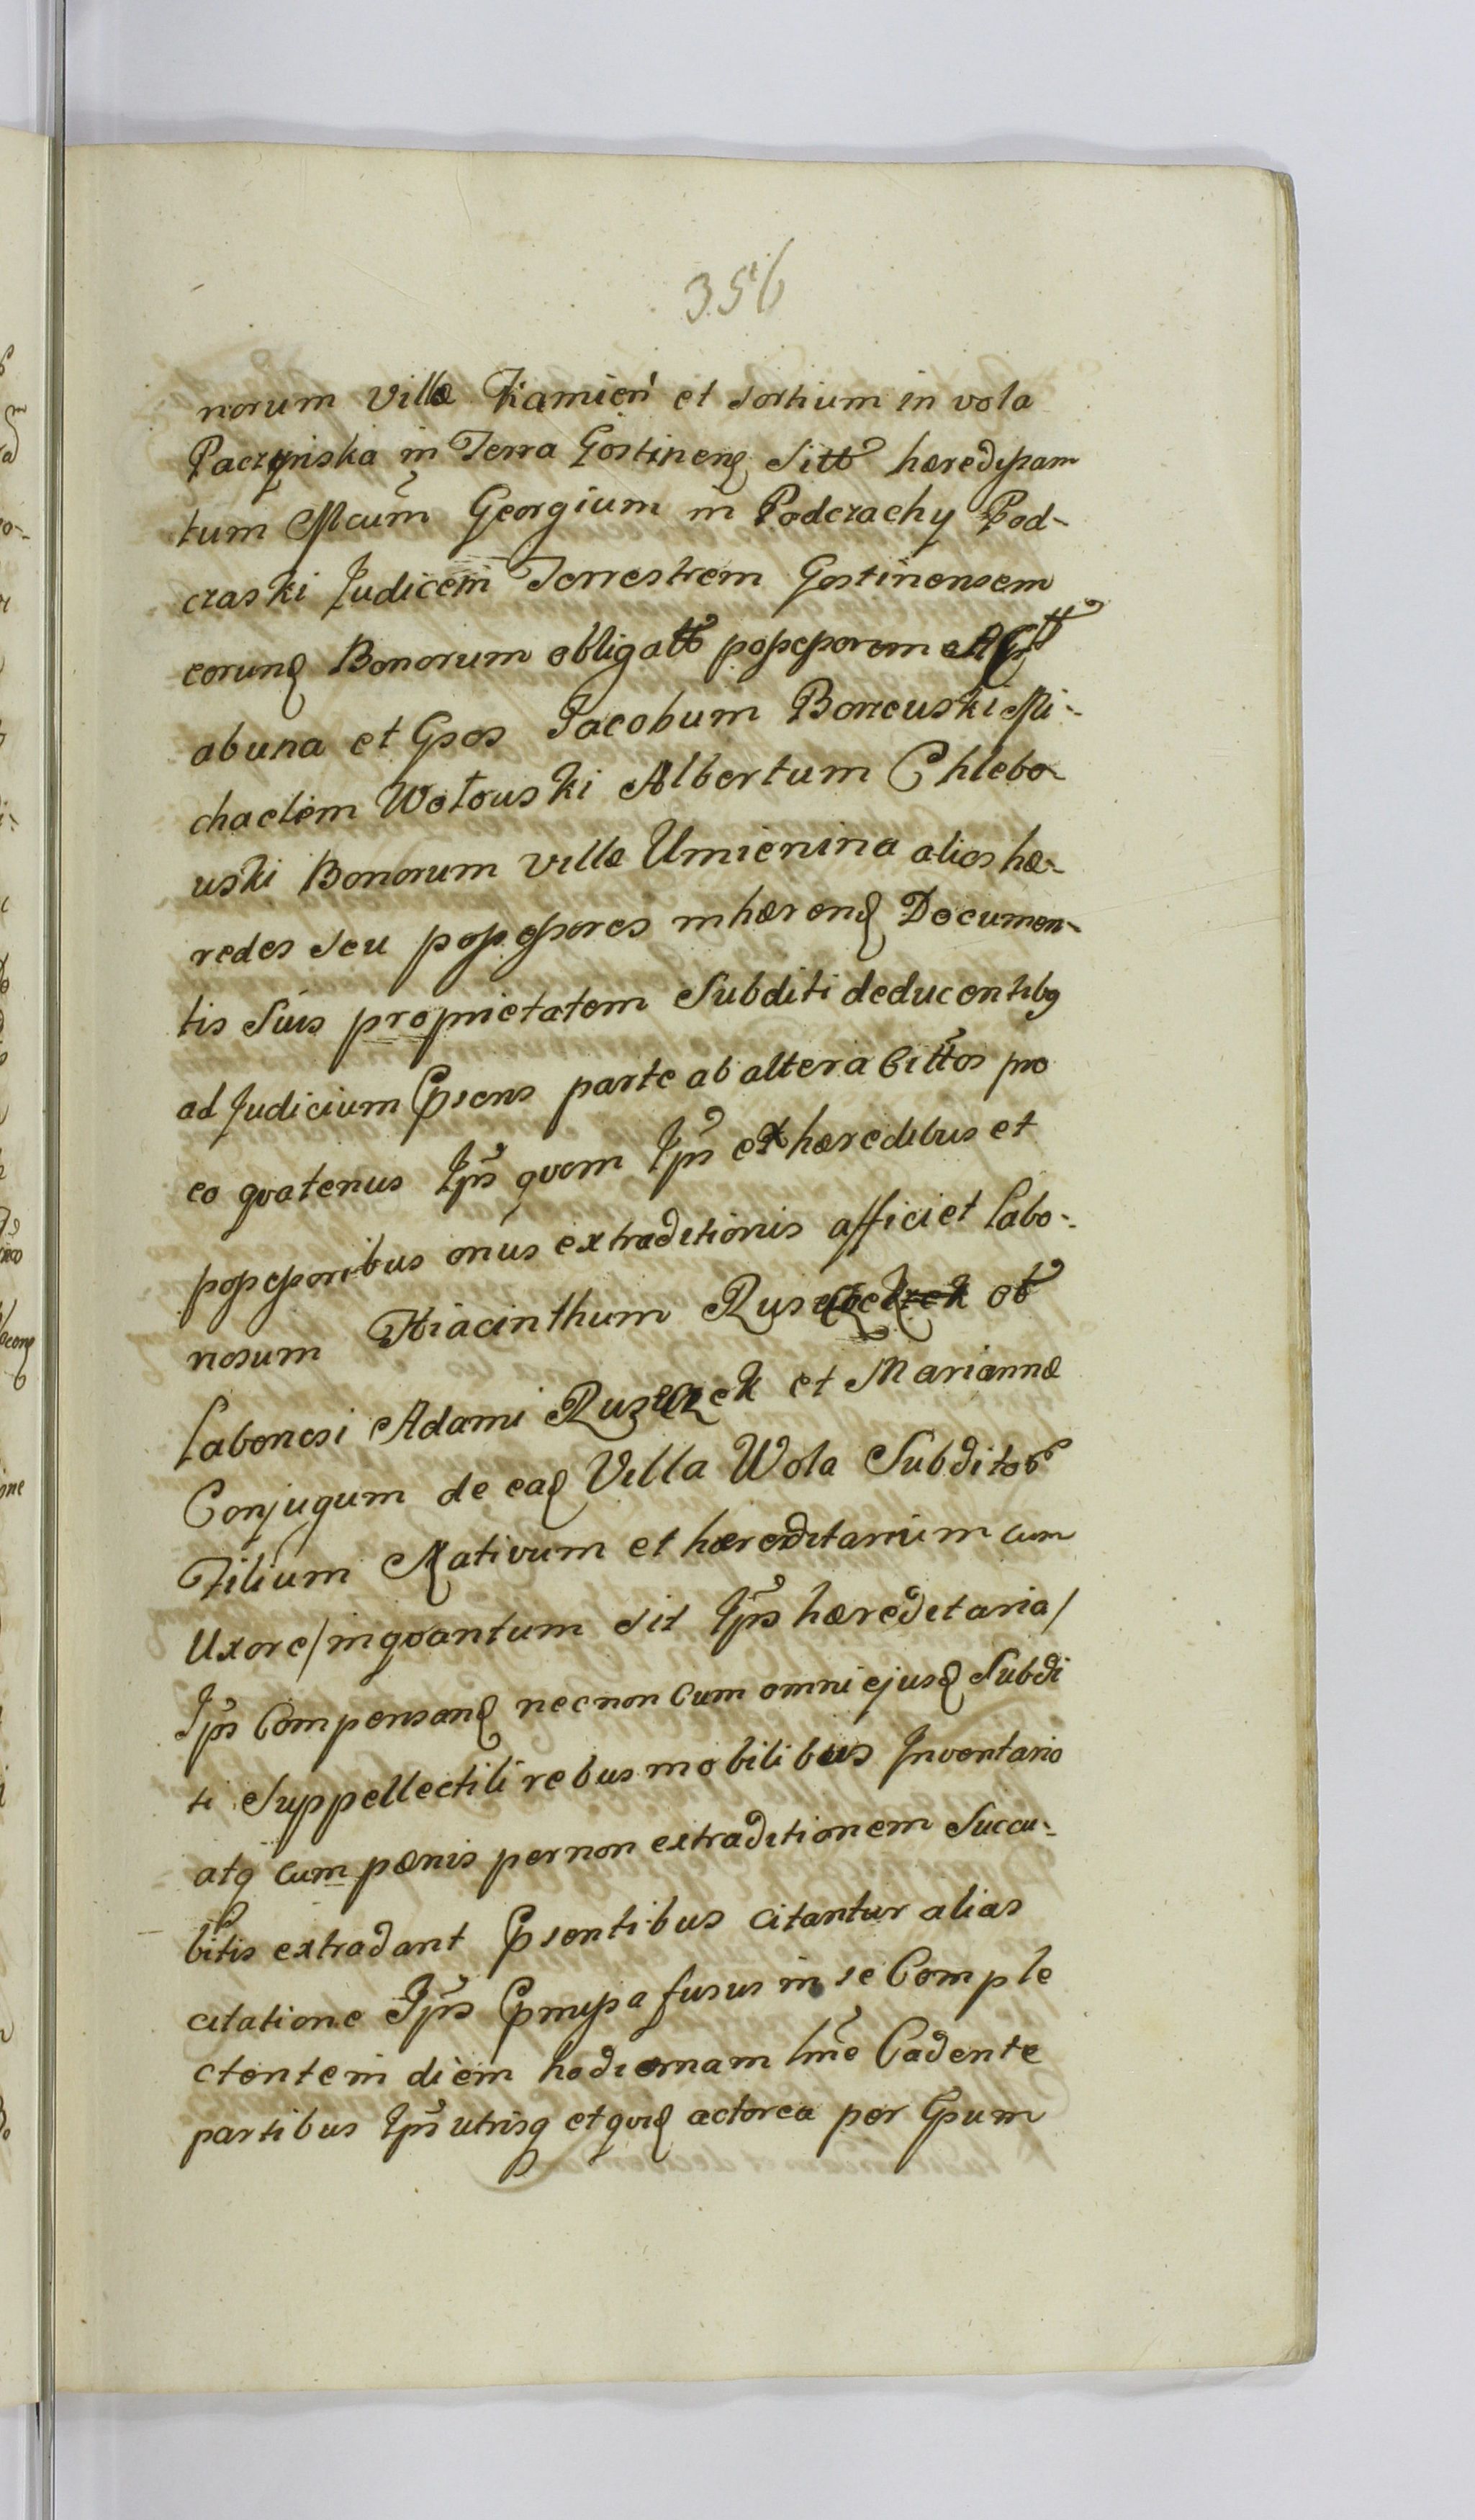 356
norum villæ Kamień et Sortium in vola
Paczyńska in Terra Gostinenꝫ Sitt hæredissam
tum Mcum Georgium in Podczachy Pod-
czaski Judicem Terrestrem Gostinensem
eorunꝫ Bonorum obligatt possessorem
abuna et Gsos Jacobum Borzewski Mi-
chaelem Wołowski Albertum Chlebo-
wski Bonorum villæ Umienina alias hæ-
redes seu possessores inhærenꝫ Documen-
tis Suis proprietatem Subditi deducentibꝫ
ad Judicium Pssens parte ab altera Cittos pro
eo qvatenus Ips qvem Ips ex hæredibus et
possessoribus onus extraditionis afficiet Labo-
riosum Hiacinthum ob
Laboriosi Adami et Mariannæ
Conjugum de eaꝫ Villa Wola Subditor
Filium Nativum et hæreditarium cum
Uxore /inqvantum sit Ips hæreditaria/
Ips Compensanꝫ necnon Cum omni ejusꝫ Subdi
ti Suppellectili rebus mobilibus Inventario
atꝗ cum pænis per non extraditionem Succu-
bitis extradant Pssentibus citantur alias
citatione Ips fusius in se Comple
ctente in diem hodiernam lme Cadente
partibus Ips utrisꝗ et qviꝫ actorea per Gsum